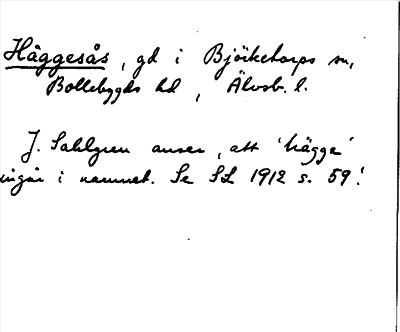 Häggesås, gd i Björketorps sn,
Bollebygds hd, Älvsb. l.
J. Sahlgren anser, att 'hägge'
ingår i namnet. Se SL 1912 s. 59!